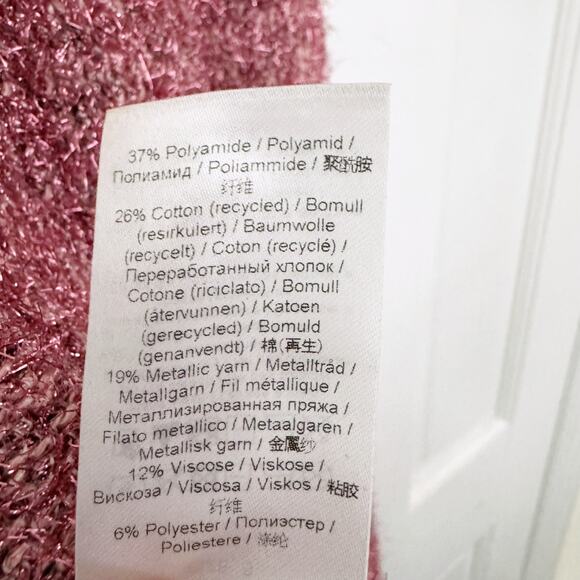 37% Polyamide / Polyamid /
Полиамид / Poliammide / 聚酰胺
纤维
26% Cotton (recycled) / Bomull
(resirkulert) / Baumwolle
(recycelt) / Coton (recyclé) /
Переработанный хлопок /
Cotone (riciclato) / Bomull
(återvunnen) / Katoen
(gerecycled) / Bomuld
(genanvendt) / 棉(再生)
19% Metallic yarn / Metalltråd /
Metallgarn / Fil métallique /
Металлизированная пряжа /
Filato metallico / Metaalgaren /
Metallisk garn / 金属纱
12% Viscose / Viskose /
Вискоза / Viscosa / Viskos / 粘胶
纤维
6% Polyester / Полиэстер /
Poliestere / 涤纶